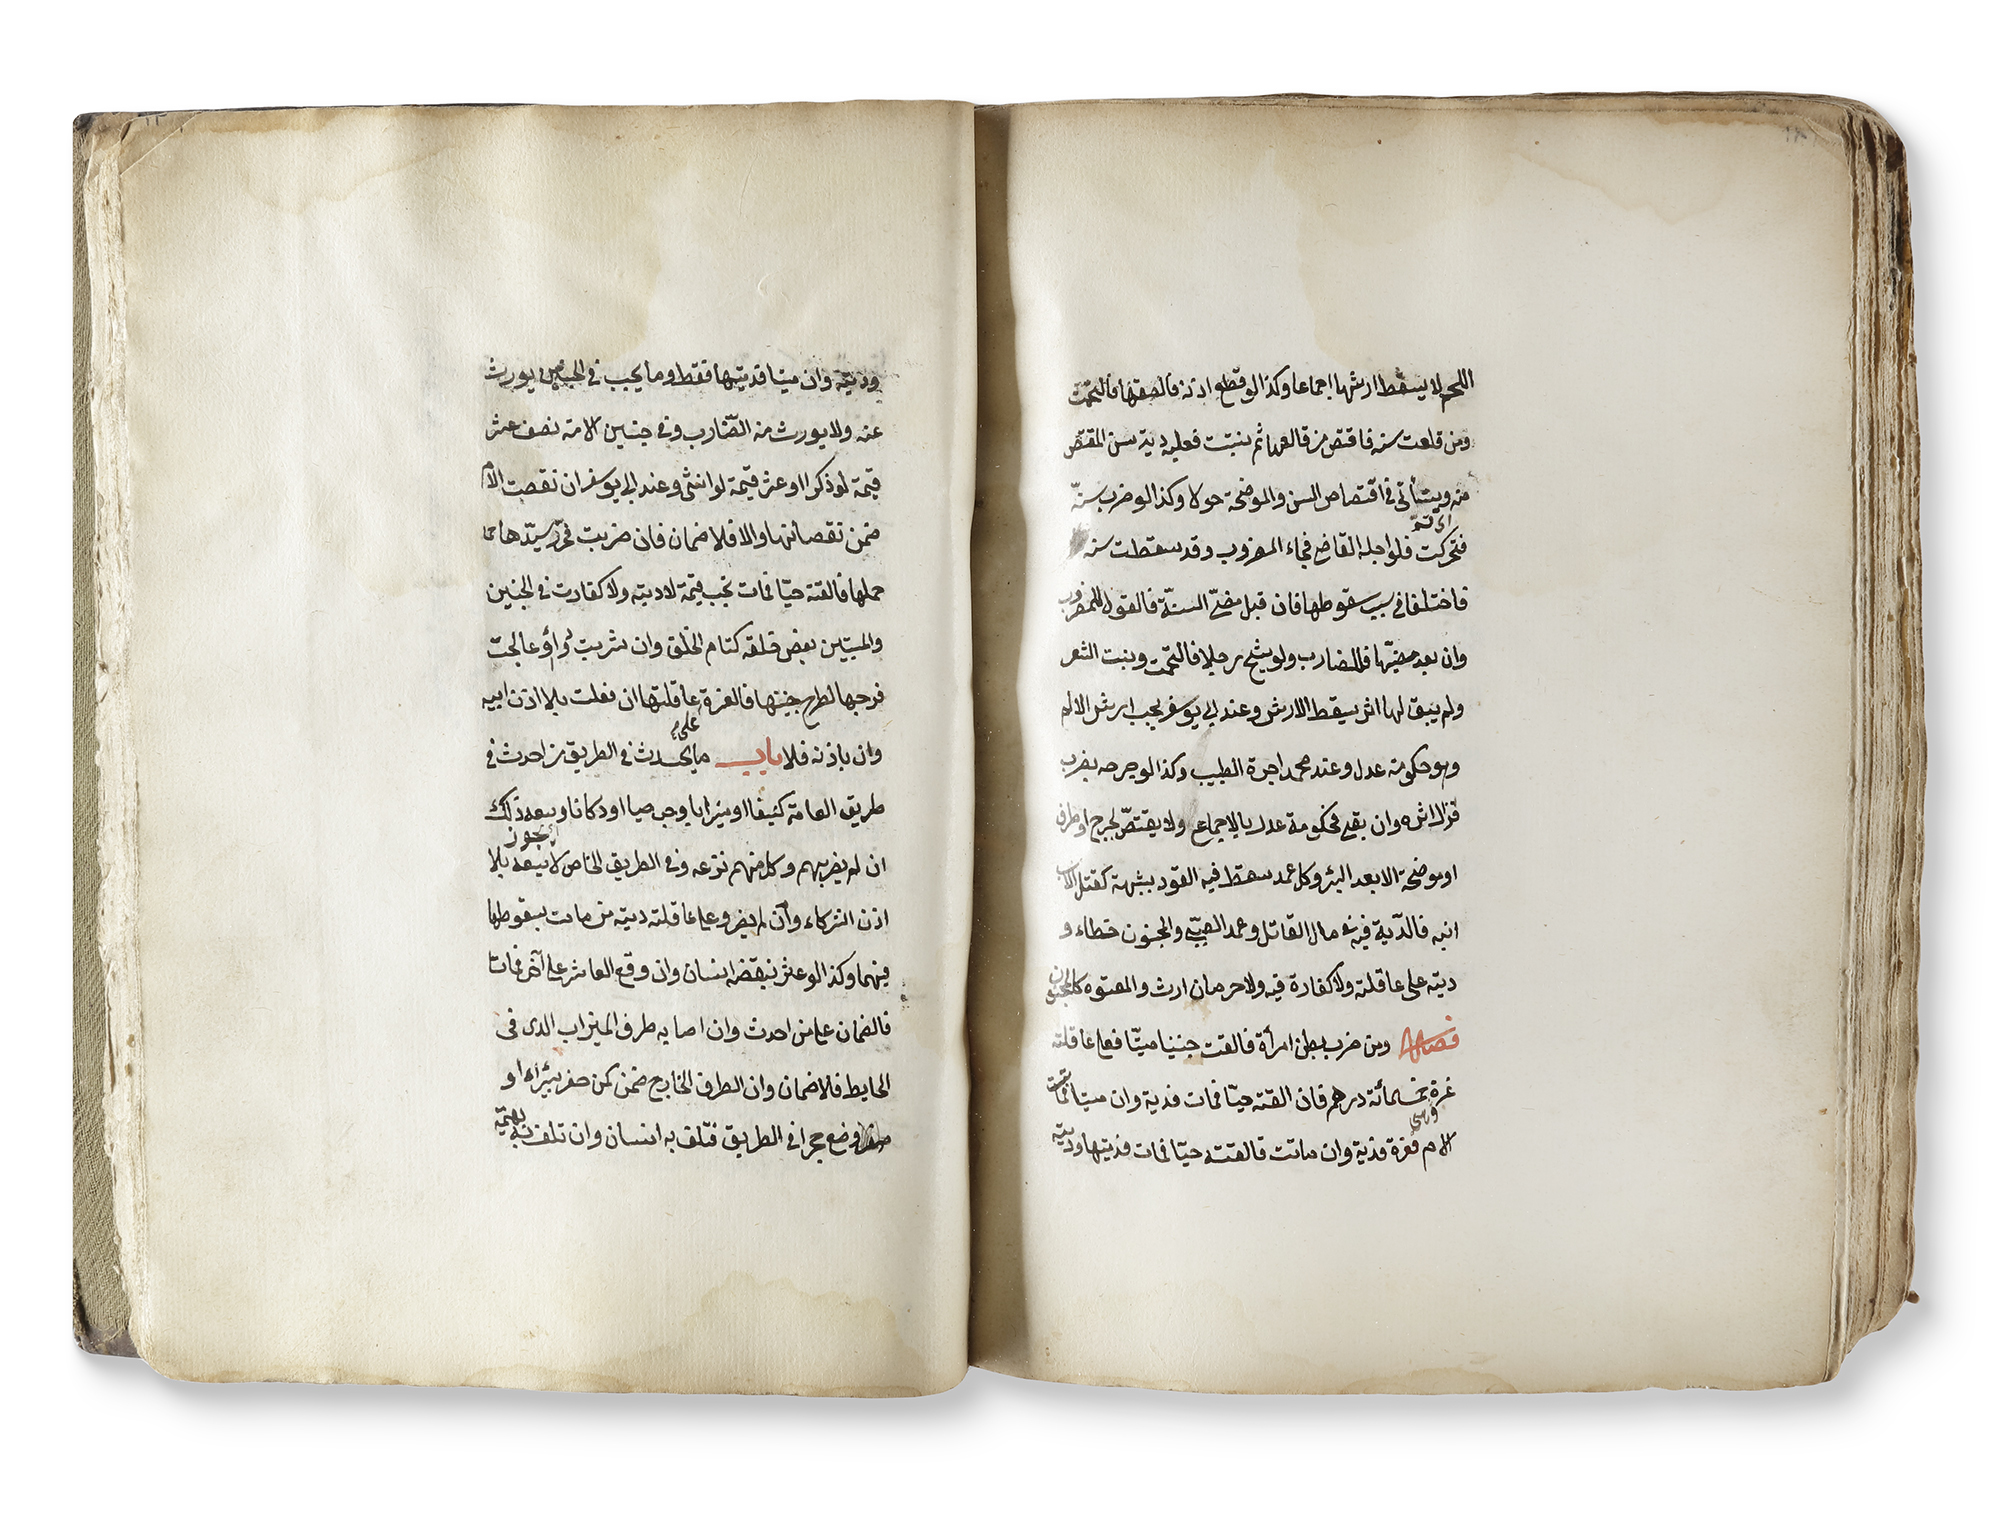 اللحم لا يسقط ارشها اجماعا وكذا لو قطع اذنه فالصقها فالتحمت
ومن قلعت سنه فاقتص من قالعها ثم نبتت فعليه دية سن المقتص
منه ويستأنى في اقتصاص السن والموضحة حولا وكذا لو ضرب سنه
فتحركت فلو اجله القاضي فجاء المضروب وقد سقطت سنه
فاختلفا في سبب سقوطها فان قبل مضي السنة فالقول للمضروب
وان بعد مضيها فللضارب ولو شج رجلا فالتحمت ونبت الشعر
ولم يبق لها اثر يسقط الارش وعند ابي يوسف يجب ارش الالم
وهو حكومة عدل وعند محمد اجرة الطبيب وكذا لو جرحه بضرب
فزال اثره وان بقي فحكومة عدل بالاجماع ولا يقتص لجرح او طرف
او موضحة الا بعد البرؤ وكل عمد سقط فيه القود بشبهة كقتل الاب
ابنه فالدية فيه في مال القاتل وعمد الصبي والمجنون خطاء و
ديته على عاقلته ولا كفارة فيه ولا حرمان ارث والمعتوه كالمجنون
فصل ومن ضرب بطن امرأة فالقت جنينا ميتا فعلى عاقلته
غرة خمسمائة درهم فان القته حيا فمات فدية وان ميتا فماتت
الام فغرة ودية وان ماتت فالقته حيا فمات فديتها وديته
وديته وان ميتا فديتها فقط وما يجب في الجنين يورث
عنه ولا يورث منه الضارب وفي جنين الامة نصف عشر
قيمة لو ذكرا او عشر قيمة لو انثى وعند ابي يوسف ان نقصت الام
ضمن نقصانها والا فلا ضمان فان ضربت فحرر سيدها
حملها فالقته حيا فمات تجب قيمة لا ديته ولا كفارت في الجنين
والمستبين بعض خلقه كتام الخلق وان شربت دواء او عالجت
فرجها لطرح جنينها فالغرة على عاقلتها ان فعلت بلا اذن ابيه
وان باذنه فلا باب ما يحدث في الطريق من احدث في
طريق العامة كنيفا او ميزابا او جرصنا او دكانا وسعه ذلك
ان لم يضر بهم وكل منهم نزعه وفي الطريق الخاص لا يسعه بلا
يجوز
اذن الشركاء وان لم يضر وعلى عاقلته دية من مات بسقوطها
فيهما وكذا لو عثر بنقضه انسان وان وقع العاثر على آخر فماتا
فالضمان على من احدث وان اصابه طرف الميزاب الذي في
الحايط فلا ضمان وان الطرف الخارج ضمن كمن حفر بئرا او
وضع حجرا في الطريق فتلف به انسان وان تلف به بهيمة